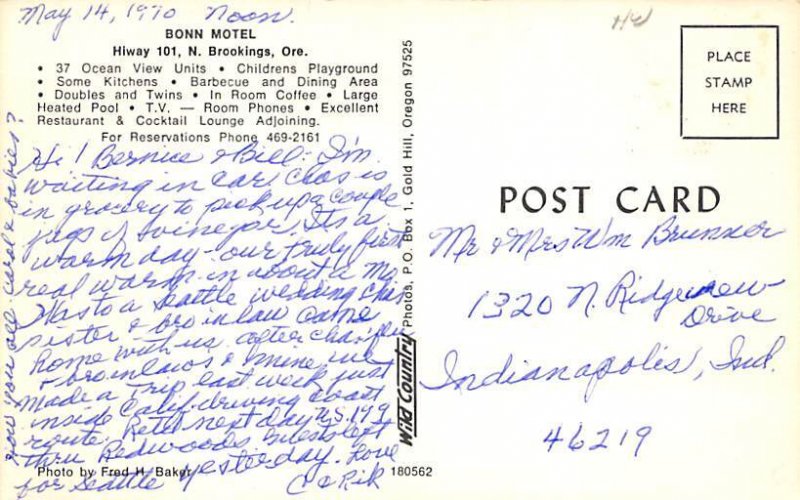 May 14, 1970 Noon.
BONN MOTEL
Hiway 101, N. Brookings, Ore.
• 37 Ocean View Units • Childrens Playground
• Some Kitchens • Barbecue and Dining Area
• Doubles and Twins • In Room Coffee • Large
Heated Pool • T.V. — Room Phones • Excellent
Restaurant & Cocktail Lounge Adjoining.
For Reservations Phone 469-2161
Hi! Bernice & Bill: I'm
waiting in car, Chas is
in grocery to pick up a couple
jugs of vinegar. Its a
warm day - our truly first
real warm in about a mo.
Was to a Seattle wedding
sister & bro in law came
home with us after
& bro in laws & mine, we
made a trip last week just
inside Calif. driving coast
route. Ret'd next day U.S. 199
thru Redwoods. Guests left
for Seattle yesterday. Love
C & Rik
how you all, Carol & babies?
Photo by Fred H. Baker
180562
Wild Country Photos, P.O. Box 1, Gold Hill, Oregon 97525
PLACE
STAMP
HERE
POST CARD
Mr & Mrs Wm Brunner
1320 N. Ridgeview
Drive
Indianapolis, Ind.
46219